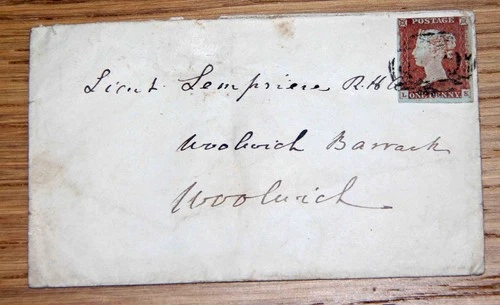 POSTAGE
Lieut Lempriere R.H.A
ONE PENNY
Woolwich Barrack
Woolwich